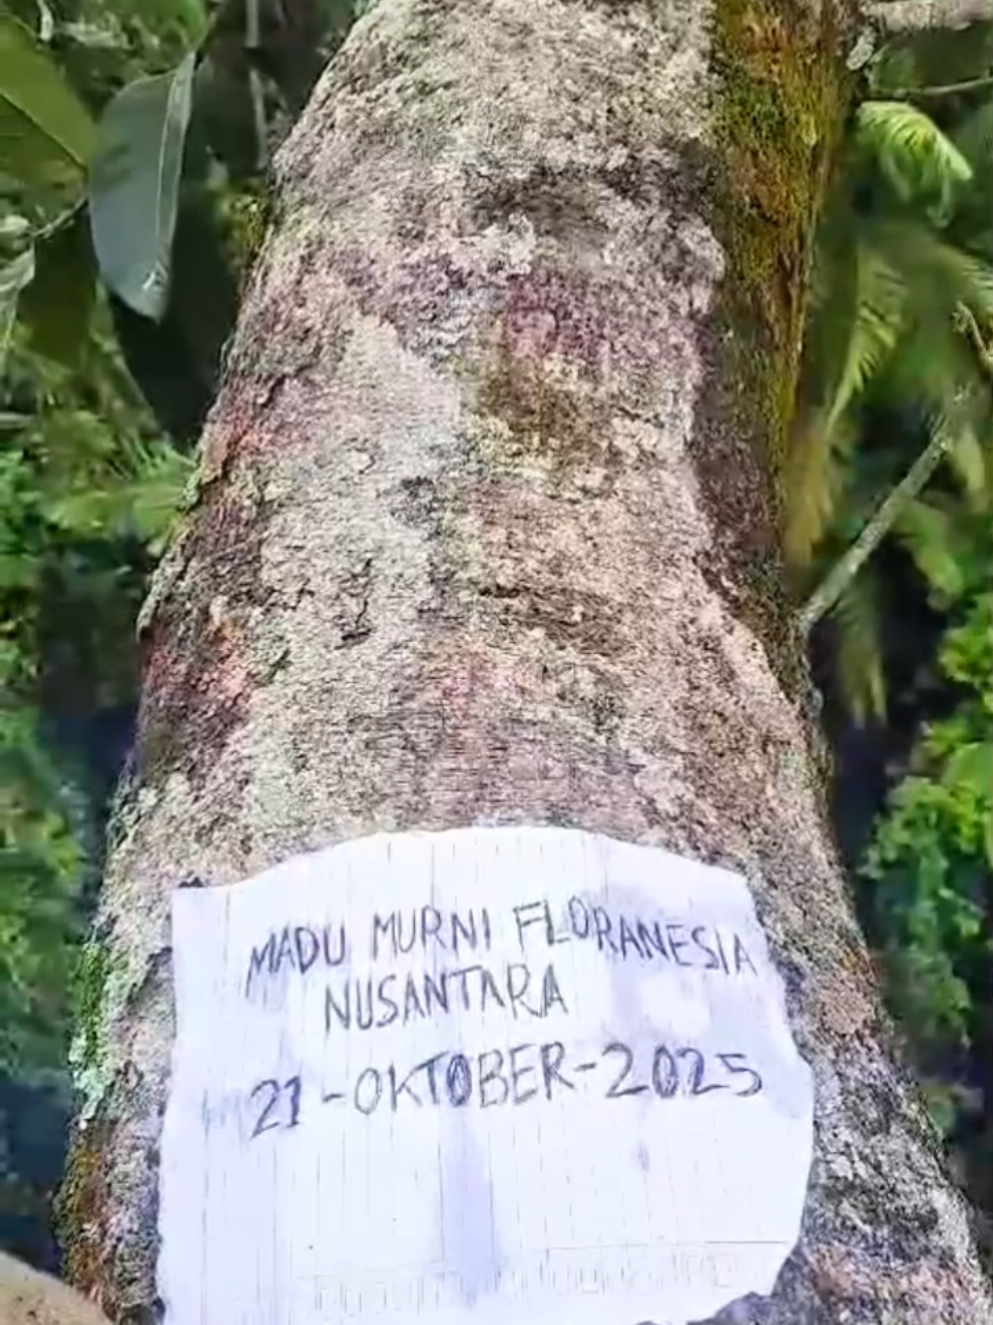 MADU MURNI FLORANESIA
NUSANTARA
21-OKTOBER-2025